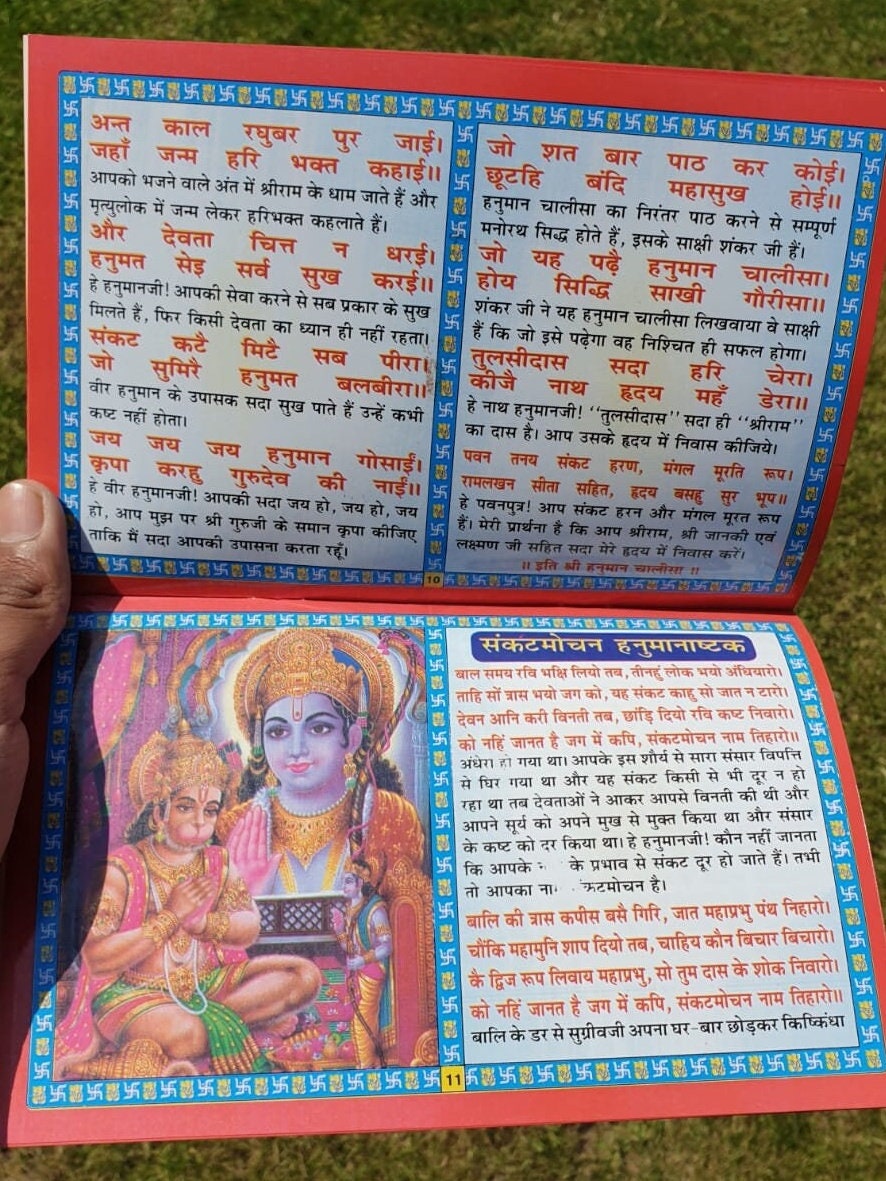 अन्त काल रघुबर पुर जाई।
जहाँ जन्म हरि भक्त कहाई॥
आपको भजने वाले अंत में श्रीराम के धाम जाते हैं और
मृत्युलोक में जन्म लेकर हरिभक्त कहलाते हैं।
और देवता चित्त न धरई।
हनुमत सेइ सर्व सुख करई॥
हे हनुमानजी! आपकी सेवा करने से सब प्रकार के सुख
मिलते हैं, फिर किसी देवता का ध्यान ही नहीं रहता।
संकट कटै मिटै सब पीरा।
जो सुमिरै हनुमत बलबीरा॥
वीर हनुमान के उपासक सदा सुख पाते हैं उन्हें कभी
कष्ट नहीं होता।
जय जय जय हनुमान गोसाईं।
कृपा करहु गुरुदेव की नाईं॥
हे वीर हनुमानजी! आपकी सदा जय हो, जय हो, जय
हो, आप मुझ पर श्री गुरुजी के समान कृपा कीजिए
ताकि मैं सदा आपकी उपासना करता रहूँ।
जो शत बार पाठ कर कोई।
छूटहि बंदि महासुख होई॥
हनुमान चालीसा का निरंतर पाठ करने से सम्पूर्ण
मनोरथ सिद्ध होते हैं, इसके साक्षी शंकर जी हैं।
जो यह पढ़ै हनुमान चालीसा।
होय सिद्धि साखी गौरीसा॥
शंकर जी ने यह हनुमान चालीसा लिखवाया वे साक्षी
हैं कि जो इसे पढ़ेगा वह निश्चित ही सफल होगा।
तुलसीदास सदा हरि चेरा।
कीजै नाथ हृदय महँ डेरा॥
हे नाथ हनुमानजी! ‘‘तुलसीदास’’ सदा ही ‘‘श्रीराम’’
का दास है। आप उसके हृदय में निवास कीजिये।
पवन तनय संकट हरण, मंगल मूरति रूप।
रामलखन सीता सहित, हृदय बसहु सुर भूप॥
हे पवनपुत्र! आप संकट हरन और मंगल मूरत रूप
हैं। मेरी प्रार्थना है कि आप श्रीराम, श्री जानकी एवं
लक्ष्मण जी सहित सदा मेरे हृदय में निवास करें।
॥ इति श्री हनुमान चालीसा ॥
10
संकटमोचन हनुमानाष्टक
बाल समय रवि भक्षि लियो तब, तीनहुं लोक भयो अंधियारो।
ताहि सों त्रास भयो जग को, यह संकट काहु सो जात न टारो।
देवन आनि करी विनती तब, छांड़ि दियो रवि कष्ट निवारो।
को नहिं जानत है जग में कपि, संकटमोचन नाम तिहारो॥
अंधेरा हो गया था। आपके इस शौर्य से सारा संसार विपत्ति
से घिर गया था और यह संकट किसी से भी दूर न हो
रहा था तब देवताओं ने आकर आपसे विनती की थी और
आपने सूर्य को अपने मुख से मुक्त किया था और संसार
के कष्ट को दर किया था। हे हनुमानजी! कौन नहीं जानता
कि आपके के प्रभाव से संकट दूर हो जाते हैं। तभी
तो आपका है।
बालि की त्रास कपीस बसै गिरि, जात महाप्रभु पंथ निहारो।
चौंकि महामुनि शाप दियो तब, चाहिय कौन बिचार बिचारो।
कै द्विज रूप लिवाय महाप्रभु, सो तुम दास के शोक निवारो।
को नहिं जानत है जग में कपि, संकटमोचन नाम तिहारो॥
बालि के डर से सुग्रीवजी अपना घर-बार छोड़कर किष्किंधा
11